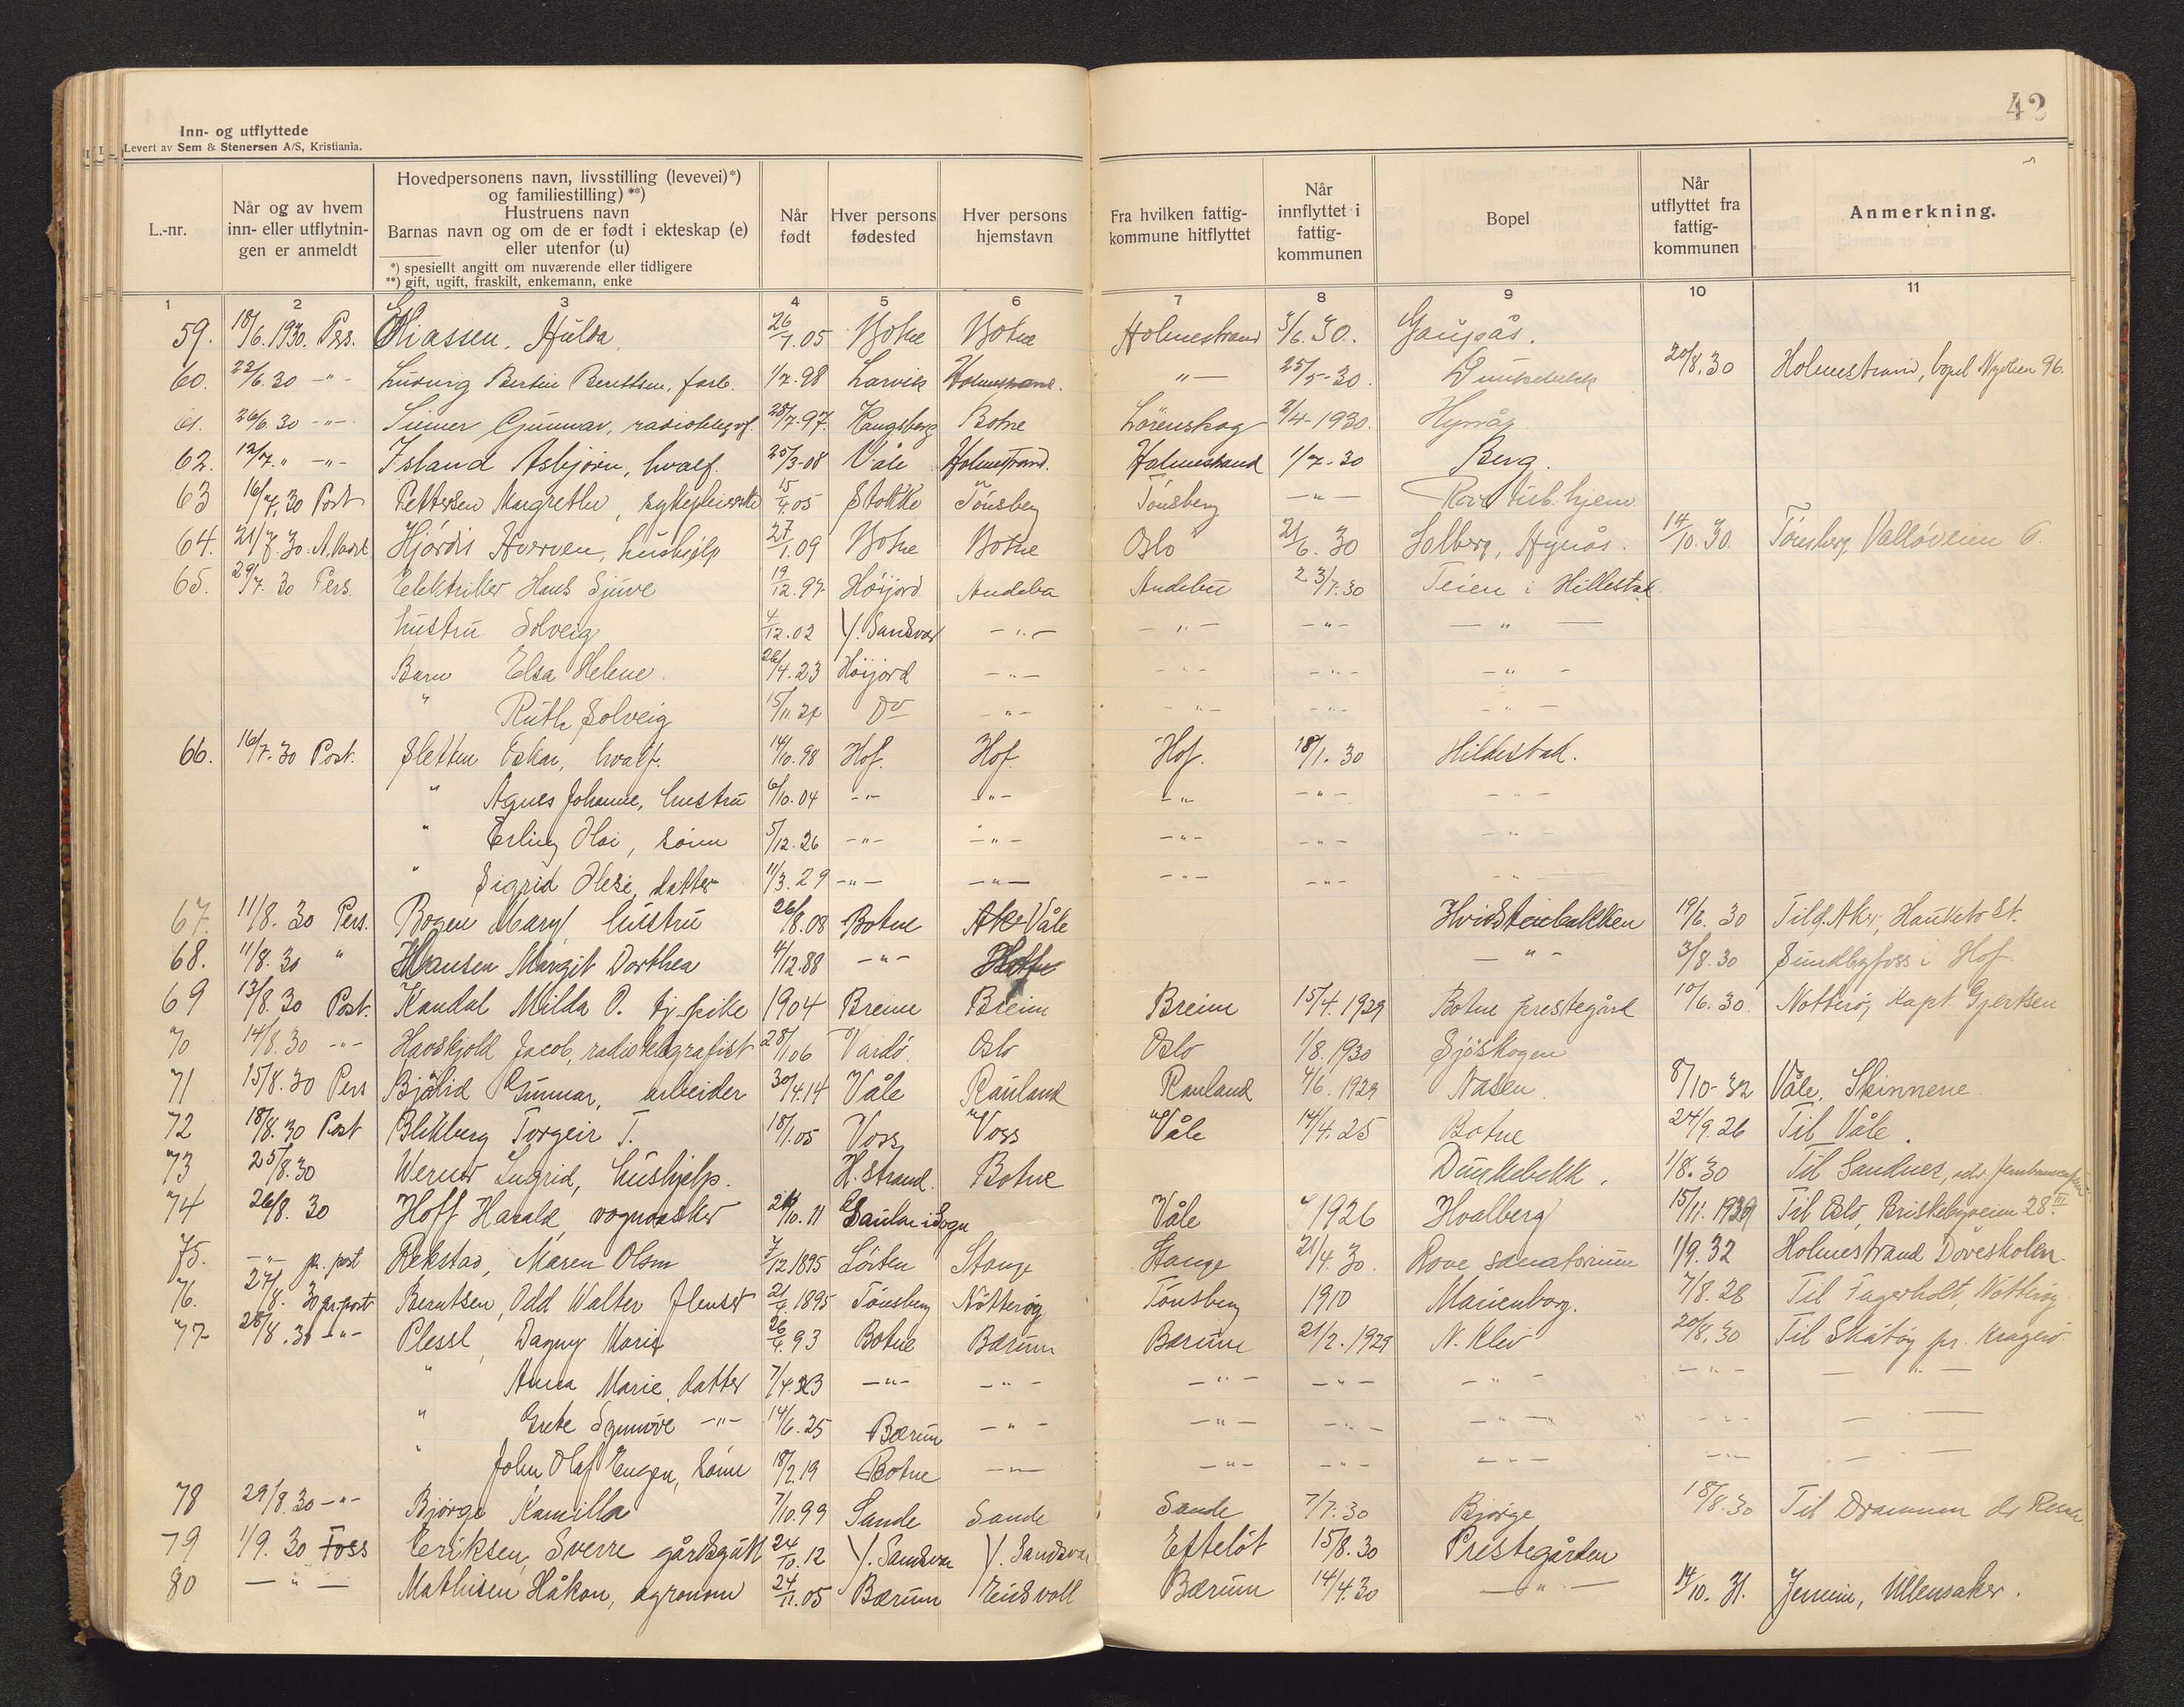 42
Inn- og utflyttede
Levert av Sem & Stenersen A/S, Kristiania.
L.-nr.
Når og av hvem inn- eller utflytnin- gen er anmeldt
Hovedpersonens navn, livsstilling (levevei)*)
og familiestilling) **)
Hustruens navn
Barnas navn og om de er født i ekteskap (e)
eller utenfor (u)
*) spesiellt angitt om nuværende eller tidligere
**) gift, ugift, fraskilt, enkemann, enke
Når født
Hver persons fødested
Hver persons hjemstavn
Fra hvilken fattig- kommune hitflyttet
Når innflyttet i fattig- kommunen
Bopel
Når utflyttet fra fattig- kommunen
Anmerkning.
1 2 3 4 5 6 7 8 9 10 11
59. 18/6.1930. Pers. Eliassen, Hulda 26/1.05 Botne Botne Holmestrand 3/6.30. Gaupås.
60. 22/6.30 -"- Ludvig Bertin Berntsen, farb. 1/7-98 Larvik Holmestrand. "- 25/5-30. Dunkebekk 20/8.30 Holmestrand, bopel Nyveien 96.
61. 26/6.30 -"- Simer Gunnar, radiotelegraf. 28/7-97. Kongsberg Botne Lörenskog 2/4-1930.
62. 12/7." -"- Island Asbjørn, hvalf. 25/3-08 Våle Holmestrand. Holmestrand 1/7-30 Berg.
63 16/7.30 Post Pettersen Margrethe, sykepleierske 15/4.05 Stokke Tönsberg Tönsberg -"- Rove tub.hjem
64. 21/7.30. Hjördis Hverven, hushjelp 27/1.09 Botne Botne Oslo 21/6.30 Solberg, 14/10.30. Tönsberg Vallöveien 6.
65. 29/7.30 Pers. Elektriker Hans Sjuve 19/12.97 Höijord Andebu Andebu 23/7.30 Teien i Hillestad
hustru Solveig 4/12.02 Y. Sandsvær -"- -"- -"- -"-
Barn Elsa Helene. 26/4.23 Höijord -"- -"- -"- -"-
" Ruth Solveig Do -"- -"- -"- -"-
66. 16/7.30 Post. Sletten Oskar, hvalf. 14/10.98 Hof. Hof. Hof. 18/1.30 Hildestad.
" Agnes Johanne, hustru 6/10.04 -"- -"- -"- -"- -"-
" Erling Olai, sönn 5/12.26 -"- -"- -"- -"- -"-
" Sigrid Olesi, datter 11/3.29 -"- -"- -"- -"- -"-
67. 11/8.30 Pers. Bogen Mary hustru 26/8.08 Botne Våle Hvidsteinbakken 19/6.30 Til Ö. Aker, Hauketo St.
68. 11/8.30 " Hansen Margit Dorthea 4/12.88 -"- -"- 3/8.30 Sundbyfoss i Hof.
69 13/8.30 Post. Kandal Milda O. tj.pike 1904 Breim Breim Breim 15/4.1929 Botne prestegård 10/6.30. Nötterö, Kapt. Gjertsen
70 14/8.30 -"- Havskjold Jacob, radiotelegrafist 28/11.06 Vardö. Oslo Oslo 1/8.1930 Sjöskogen
71 15/8.30 Pers Bjålid Gunnar, arbeider 30/4.14 Våle Rauland Rauland 4/6.1929 Nasen. 8/10-32 Våle, Skinnene
72 18/8.30 Post Blikberg Torgeir T. 18/1.05 Voss Voss Våle 14/4.25 Botne 24/9.26 Til Våle.
73 25/8.30 Werner Ingrid, hushjelp. H.strand. Botne Dunkebekk. 1/8.30 Til Sandnes,
74 26/8.30 Hoff Harald vognvasker 26/10.11 i Sogn Våle 1926 Hvalberg 15/11.1929 Til Oslo, Briskebyveien 28 III
75. -"- pr. post Rekstad, Maren Olson 7/12.1895 Löiten Stange Stange 21/4.30. Rove sanatorium 1/9.32 Holmestrand Döveskolen.
76. 27/8.30 pr.post Berntsen, Odd Walter flenser 21/4.1895 Tönsberg Nötteröy Tönsberg 1910 Marienborg. 7/8.28 Til Fagerholt, Nötteröy
77 28/8.30 -"- Plessl, Dagny Marie 26/4.93 Botne Bærum Bærum 21/2.1929 N. Klev 20/8.30 Til Skåtöy pr. Kragerö.
" Anna Marie, datter 7/4.23 -"- -"- -"- -"- -"- -"- -"-
" Grete Synnöve -"- 14/6.25 Bærum -"- -"- -"- -"- -"-
" John Olaf Eugen, sönn 18/2.19 Botne -"- -"- -"- -"- -"-
78 29/8.30 -"- Bjørge Kamilla 7/10.99 Sande Sande Sande 7/7.30 Bjørge 18/8.30 Til Drammen
79 1/9.30 Foss Eriksen, Sverre gårdsgutt 24/10.12 Y. Sandsvær Y. Sandsvær Efteløt 15/8.30 Prestegården
80 -"- Mathisen Håkon, agronom 24/11.05 Bærum Eidsvoll Bærum 14/4.30 -"- 14/10.31. Jessheim, Ullensaker.